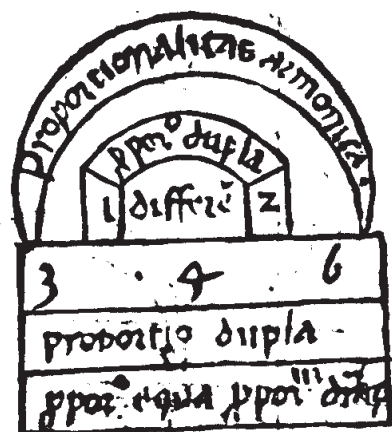 proportionalitas armonica
ꝓporº dupla
1 differē 2
3 · 4 6
proportio dupla
ꝓpor equa ꝓpor